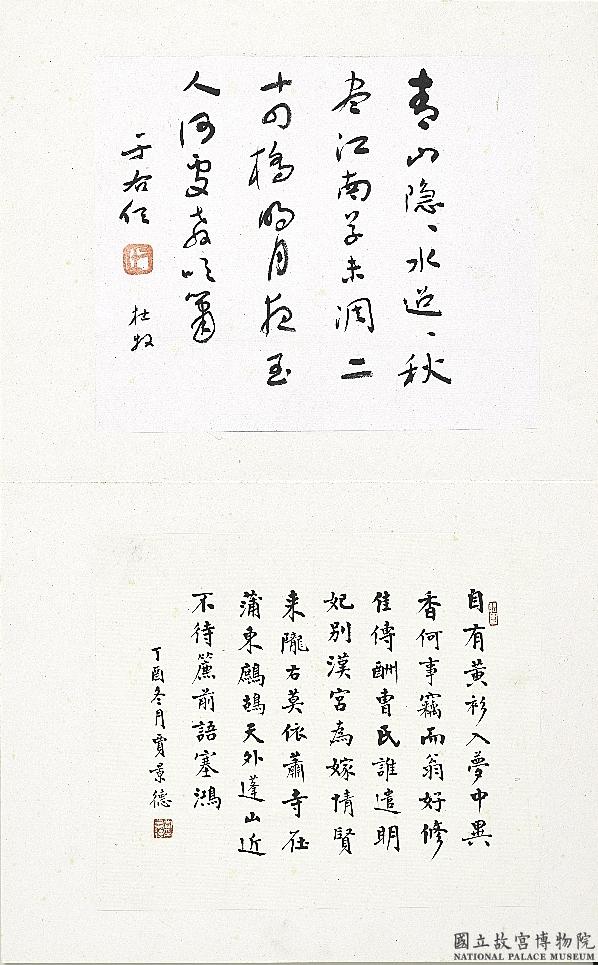 青山隐、水迢、秋
尽江南草未凋二
十四橋明月夜玉
人何處教吹簫
于右任
杜牧
自有黃衫入夢中異
香何事竊而翁好修
佳傳酬曹氏誰遣明
妃別漢宮為嫁情賢
来隴右莫依蕭寺在
蒲東鷓鴣天外蓬山近
不待簾前語塞鴻
丁酉冬月賈景德
國立故宮博物院
NATIONAL PALACE MUSEUM